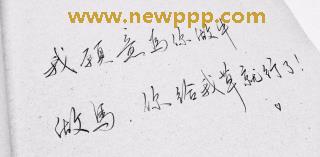 www.newppp.com
我愿意为你做牛
做马．你给我草就行了！